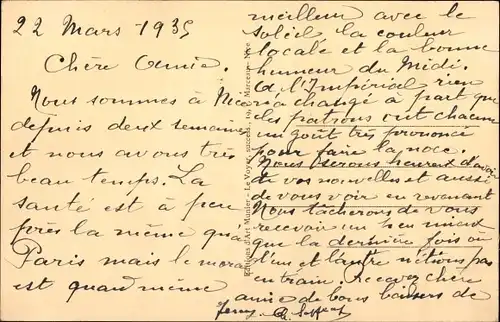 22 Mars 1935
Chère Amie.
Nous sommes à Nice
depuis deux semaines
et nous avons très
beau temps. La
santé est à peu
près la même qu'à
Paris mais le moral
est quand même
meilleur avec le
soleil, la couleur
locale et la bonne
humeur du Midi.
A l'Impérial rien
n'a changé à part que
les patrons ont chacun
un goût très prononcé
pour faire la noce.
Nous serons heureux d'avoir
de vos nouvelles et aussi
de vous voir en revenant
Nous tâcherons de vous
recevoir un peu mieux
que la dernière fois où
l'un et l'autre n'étions pas
en train. Recevez chère
amie de bons baisers de
Editions d'Art Munier, Le Voyer, success. 19, r. Marceau - Nice